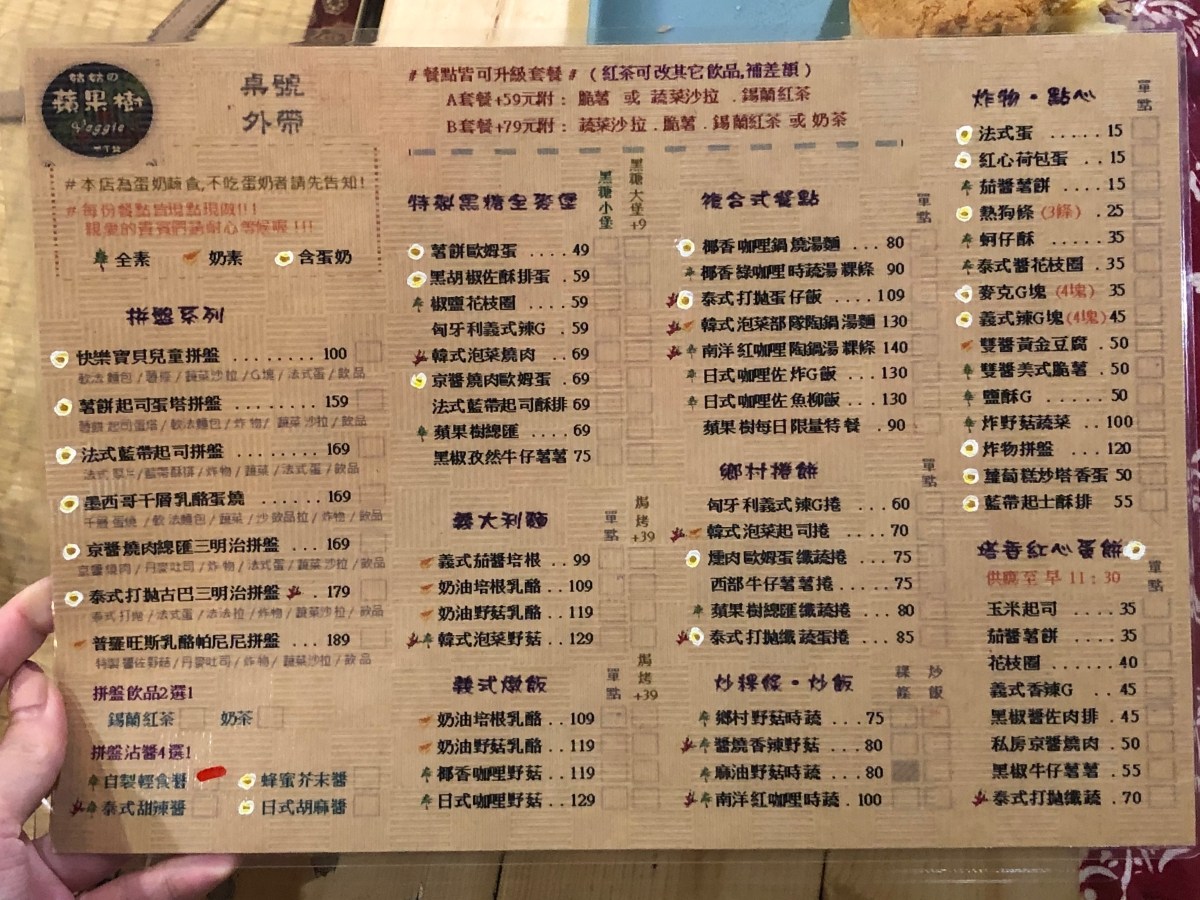 姑姑の
蘋果樹
Veggie
桌號
外帶
#本店為蛋奶蔬食,不吃蛋奶者請先告知!
#每份餐點皆現點現做!!!
親愛的貴賓們請耐心等候喔!!!
全素 奶素 含蛋奶
拼盤系列
快樂寶貝兒童拼盤 ........ 100
軟法麵包/薯條/蔬菜沙拉/G塊/法式蛋/飲品
薯餅起司蛋塔拼盤 ........ 159
薯餅起司蛋塔/軟法麵包/炸物/蔬菜沙拉/飲品
法式藍帶起司拼盤 ........ 169
法式厚片/藍帶酥排/炸物/蔬菜/法式蛋/飲品
墨西哥千層乳酪蛋燒 ...... 169
京醬燒肉總匯三明治拼盤 ... 169
京醬燒肉/丹麥吐司/炸物/法式蛋/蔬菜沙拉/飲品
泰式打拋古巴三明治拼盤 . 179
普羅旺斯乳酪帕尼尼拼盤 ... 189
特製醬佐野菇/丹麥吐司/炸物/蔬菜沙拉/飲品
拼盤飲品2選1
錫蘭紅茶 奶茶
拼盤沾醬4選1
自製輕食醬 蜂蜜芥末醬
泰式甜辣醬 日式胡麻醬
#餐點皆可升級套餐#(紅茶可改其它飲品,補差額)
A套餐+59元附: 脆薯 或 蔬菜沙拉 .錫蘭紅茶
B套餐+79元附: 蔬菜沙拉 .脆薯 .錫蘭紅茶 或 奶茶
特製黑糖全麥堡
黑糖小堡
黑糖大堡+9
薯餅歐姆蛋 .... 49
黑胡椒佐酥排蛋 . 59
椒鹽花枝圈 .... 59
匈牙利義式辣G . 59
韓式泡菜燒肉 .. 69
京醬燒肉歐姆蛋 . 69
法式藍帶起司酥排 69
蘋果樹總匯 .... 69
黑椒孜然牛仔薯薯 75
義大利麵
單點
焗烤+39
義式茄醬培根 .. 99
奶油培根乳酪 .. 109
奶油野菇乳酪 .. 119
韓式泡菜野菇 .. 129
義式燉飯
單點
焗烤+39
奶油培根乳酪 .. 109
奶油野菇乳酪 .. 119
椰香咖哩野菇 .. 119
日式咖哩野菇 .. 129
複合式餐點
單點
椰香咖哩鍋燒湯麵 ... 80
椰香綠咖哩時蔬湯粿條 90
泰式打拋蛋仔飯 ... 109
韓式泡菜部隊陶鍋湯麵 130
南洋紅咖哩陶鍋湯粿條 140
日式咖哩佐炸G飯 ... 130
日式咖哩佐魚柳飯 ... 130
蘋果樹每日限量特餐 . 90
鄉村捲餅
單點
匈牙利義式辣G捲 ... 60
韓式泡菜起司捲 .... 70
燻肉歐姆蛋纖蔬捲 ... 75
西部牛仔薯薯捲 .... 75
蘋果樹總匯纖蔬捲 .. 80
泰式打拋纖蔬蛋捲 .. 85
炒粿條・炒飯
粿條
炒飯
鄉村野菇時蔬 ... 75
醬燒香辣野菇 ... 80
麻油野菇時蔬 ... 80
南洋紅咖哩時蔬 . 100
炸物・點心
單點
法式蛋 ..... 15
紅心荷包蛋 .. 15
茄醬薯餅 ... 15
熱狗條 (3條) . 25
蚵仔酥 ..... 35
泰式醬花枝圈 . 35
麥克G塊 (4塊) 35
義式辣G塊(4塊) 45
雙醬黃金豆腐 . 50
雙醬美式脆薯 . 50
鹽酥G ..... 50
炸野菇蔬菜 .. 100
炸物拼盤 .... 120
蘿蔔糕炒塔香蛋 50
藍帶起士酥排 55
塔香紅心蛋餅
供應至早11:30
單點
玉米起司 .... 35
茄醬薯餅 .... 35
花枝圈 ...... 40
義式香辣G .. 45
黑椒醬佐肉排 . 45
私房京醬燒肉 . 50
黑椒牛仔薯薯 . 55
泰式打拋纖蔬 . 70